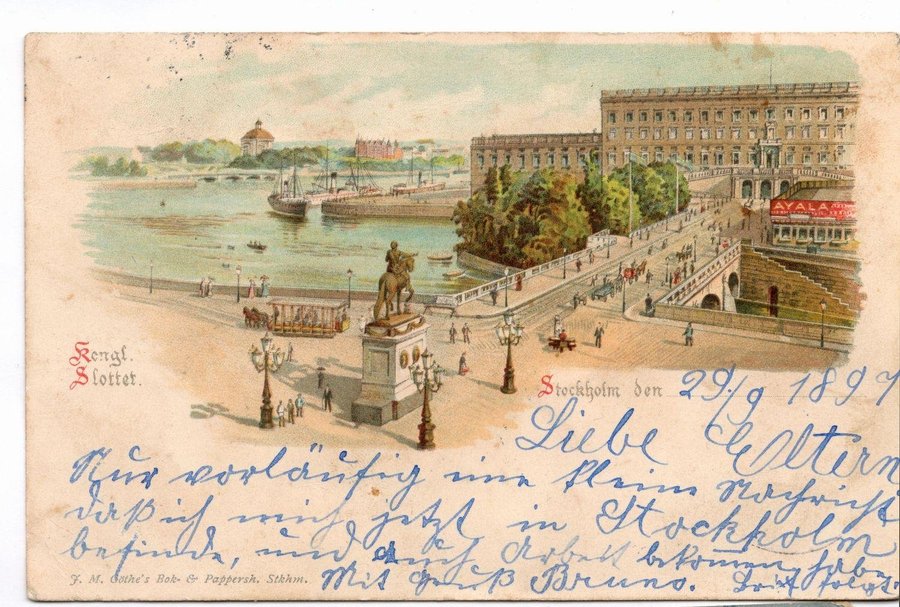 AYALA
Kongl.
Slottet.
Stockholm den 29/9 1897
Liebe Eltern
Nur vorläufig eine kleine Nachricht
daß ich mich jetzt in Stockholm
befinde, und auch Arbeit bekommen habe.
Mit Gruß Bruno. Brief folgt.
J. M. Göthe's Bok- & Pappersh. Stkhm.